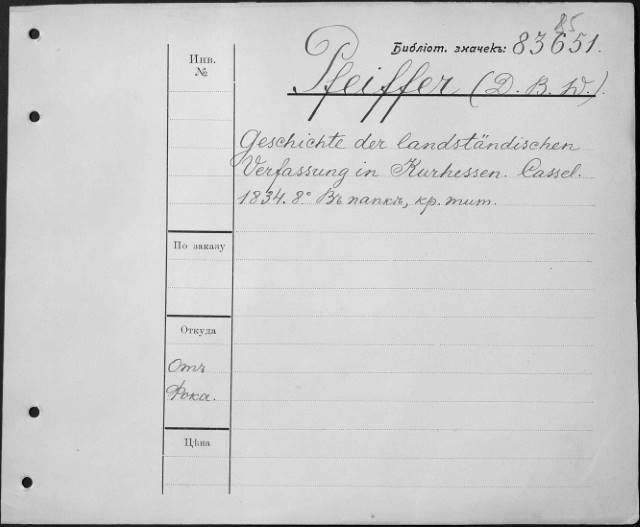 85
Библіот. значекъ: 83651.
Инв.
№
Pfeiffer (D. B. W.).
Geschichte der landständischen
Verfassung in Kurhessen. Cassel.
1834. 8° Въ папкѣ, кр. тит.
По заказу
Откуда
Отъ
Фока.
Цѣна